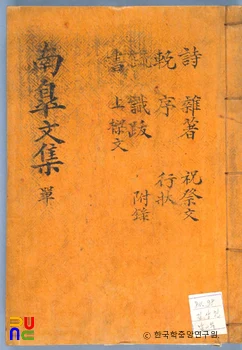 詩 雜著 祝祭文
輓 序 行狀
識跋 附錄
書 上樑文
南皐文集 單
ⓒ 한국학중앙연구원